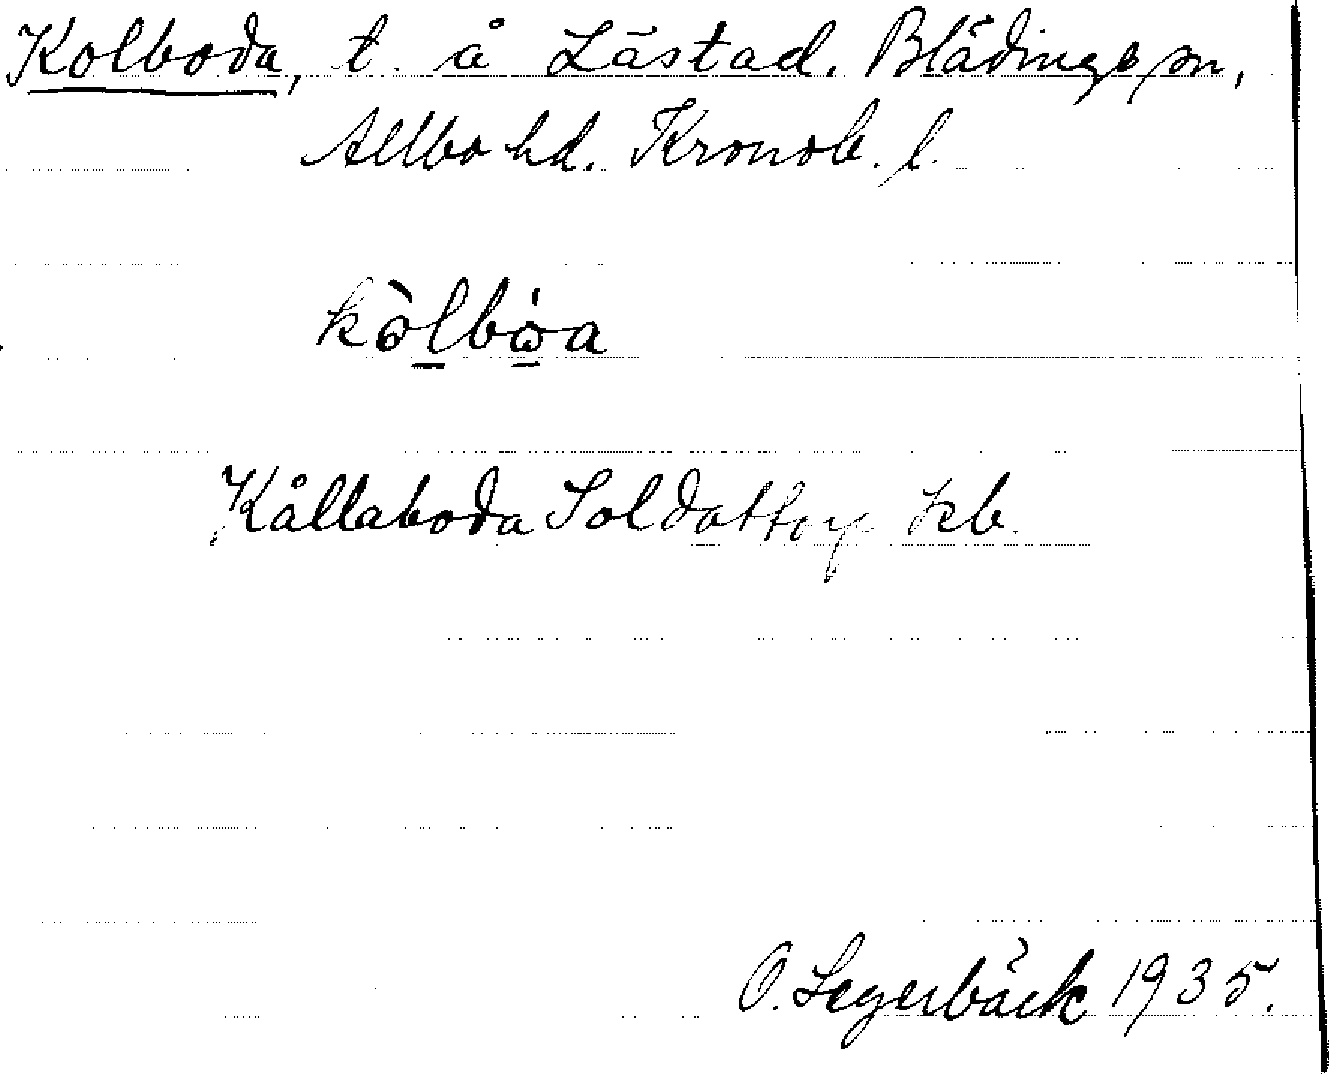 Kolboda, t. å Låstad. Blädinge sn,
Allbo hd. Kronob. l.
kòlbòa
Kållaboda Soldattorp kb.
O. Segerbäck 1935.